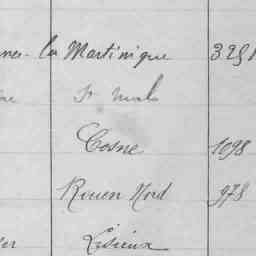 la Martinique 325
St Malo
Cosne 1098
Rouen Nord 978
Lisieux